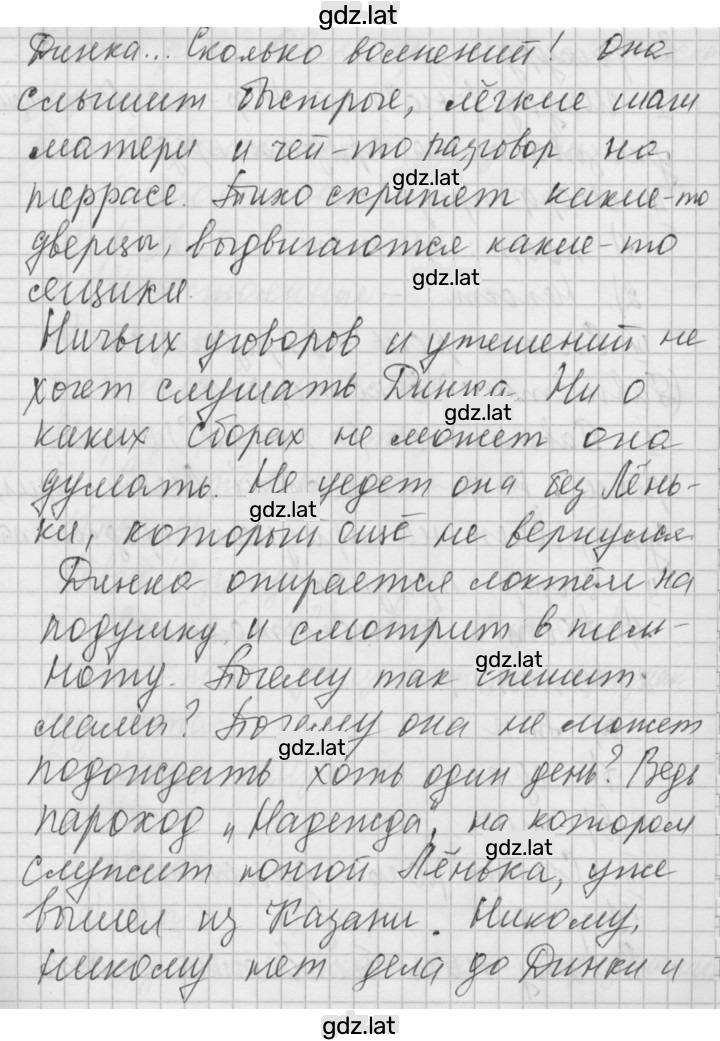 gdz.lat
Динка... Сколько волнений! Она
слышит быстрые, лёгкие шаги
матери и чей-то разговор на
gdz.lat
террасе. Тихо скрипят какие-то
дверцы, выдвигаются какие-то
gdz.lat
ящики.
Ничьих уговоров и утешений не
хочет слушать Динка. Ни о
gdz.lat
каких сборах не может она
думать. Не уедет она без Лёнь-
gdz.lat
ки, который ещё не вернулся.
Динка опирается локтем на
подушку и смотрит в тем-
gdz.lat
ноту. Почему так спешит
мама? Почему она не может
gdz.lat
подождать хоть один день? Ведь
пароход „Надежда“, на котором
gdz.lat
служит юнгой Лёнька, уже
вышел из Казани. Никому,
никому нет дела до Динки и
gdz.lat